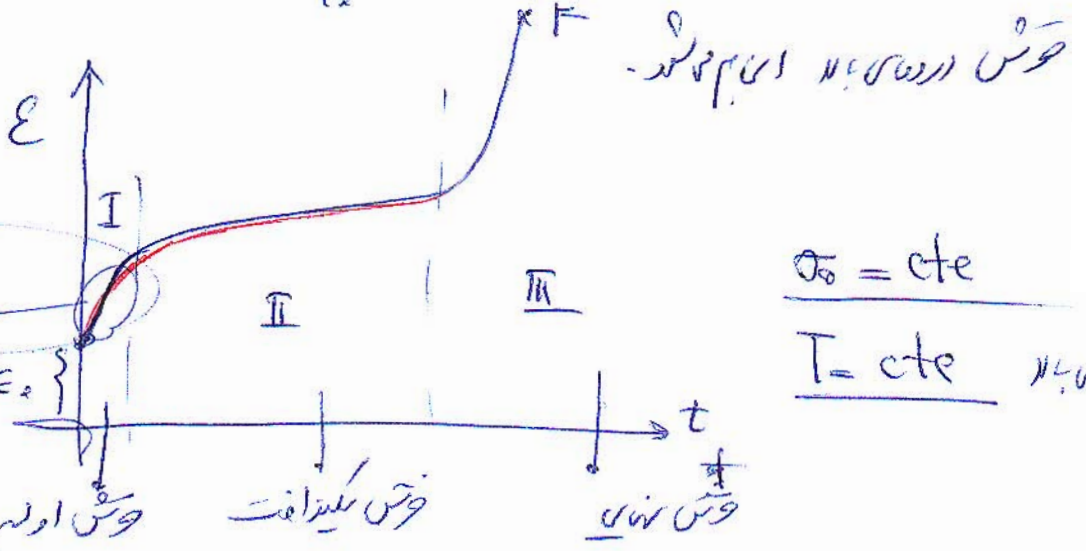 F
خزش در دمای بالا انجام می‌شود.
ε
I
II
III
σ₀ = cte
T = cte
ε₀ {
t
خزش اولیه
خزش یکنواخت
خزش نهایی